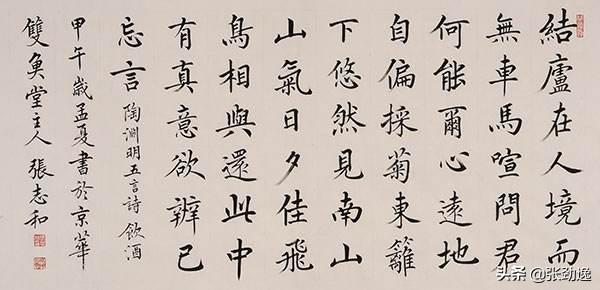 結廬在人境而
無車馬喧問君
何能爾心遠地
自偏採菊東籬
下悠然見南山
山氣日夕佳飛
鳥相與還此中
有真意欲辨已
忘言 陶淵明五言詩飲酒
甲午歲孟夏書於京華
雙魚堂主人張志和
头条 @张劲逸